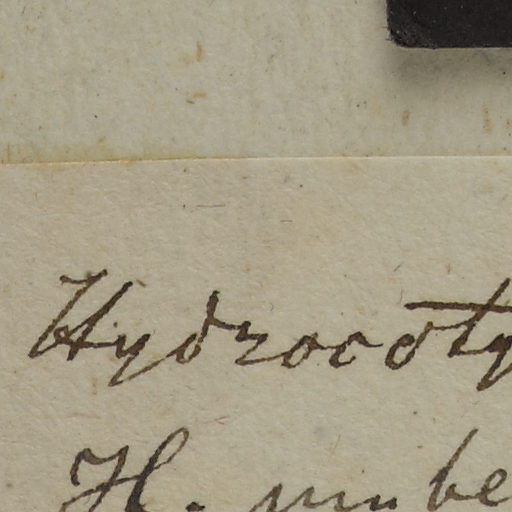 Hydrocoty
H. umbe